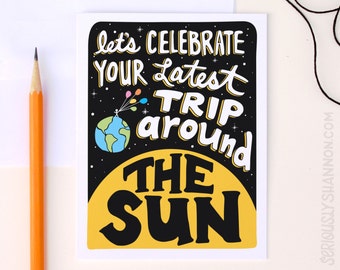 let's CELEBRATE
YOUR Latest
TRIP
around
THE
SUN
SERIOUSLYSHANNON.COM